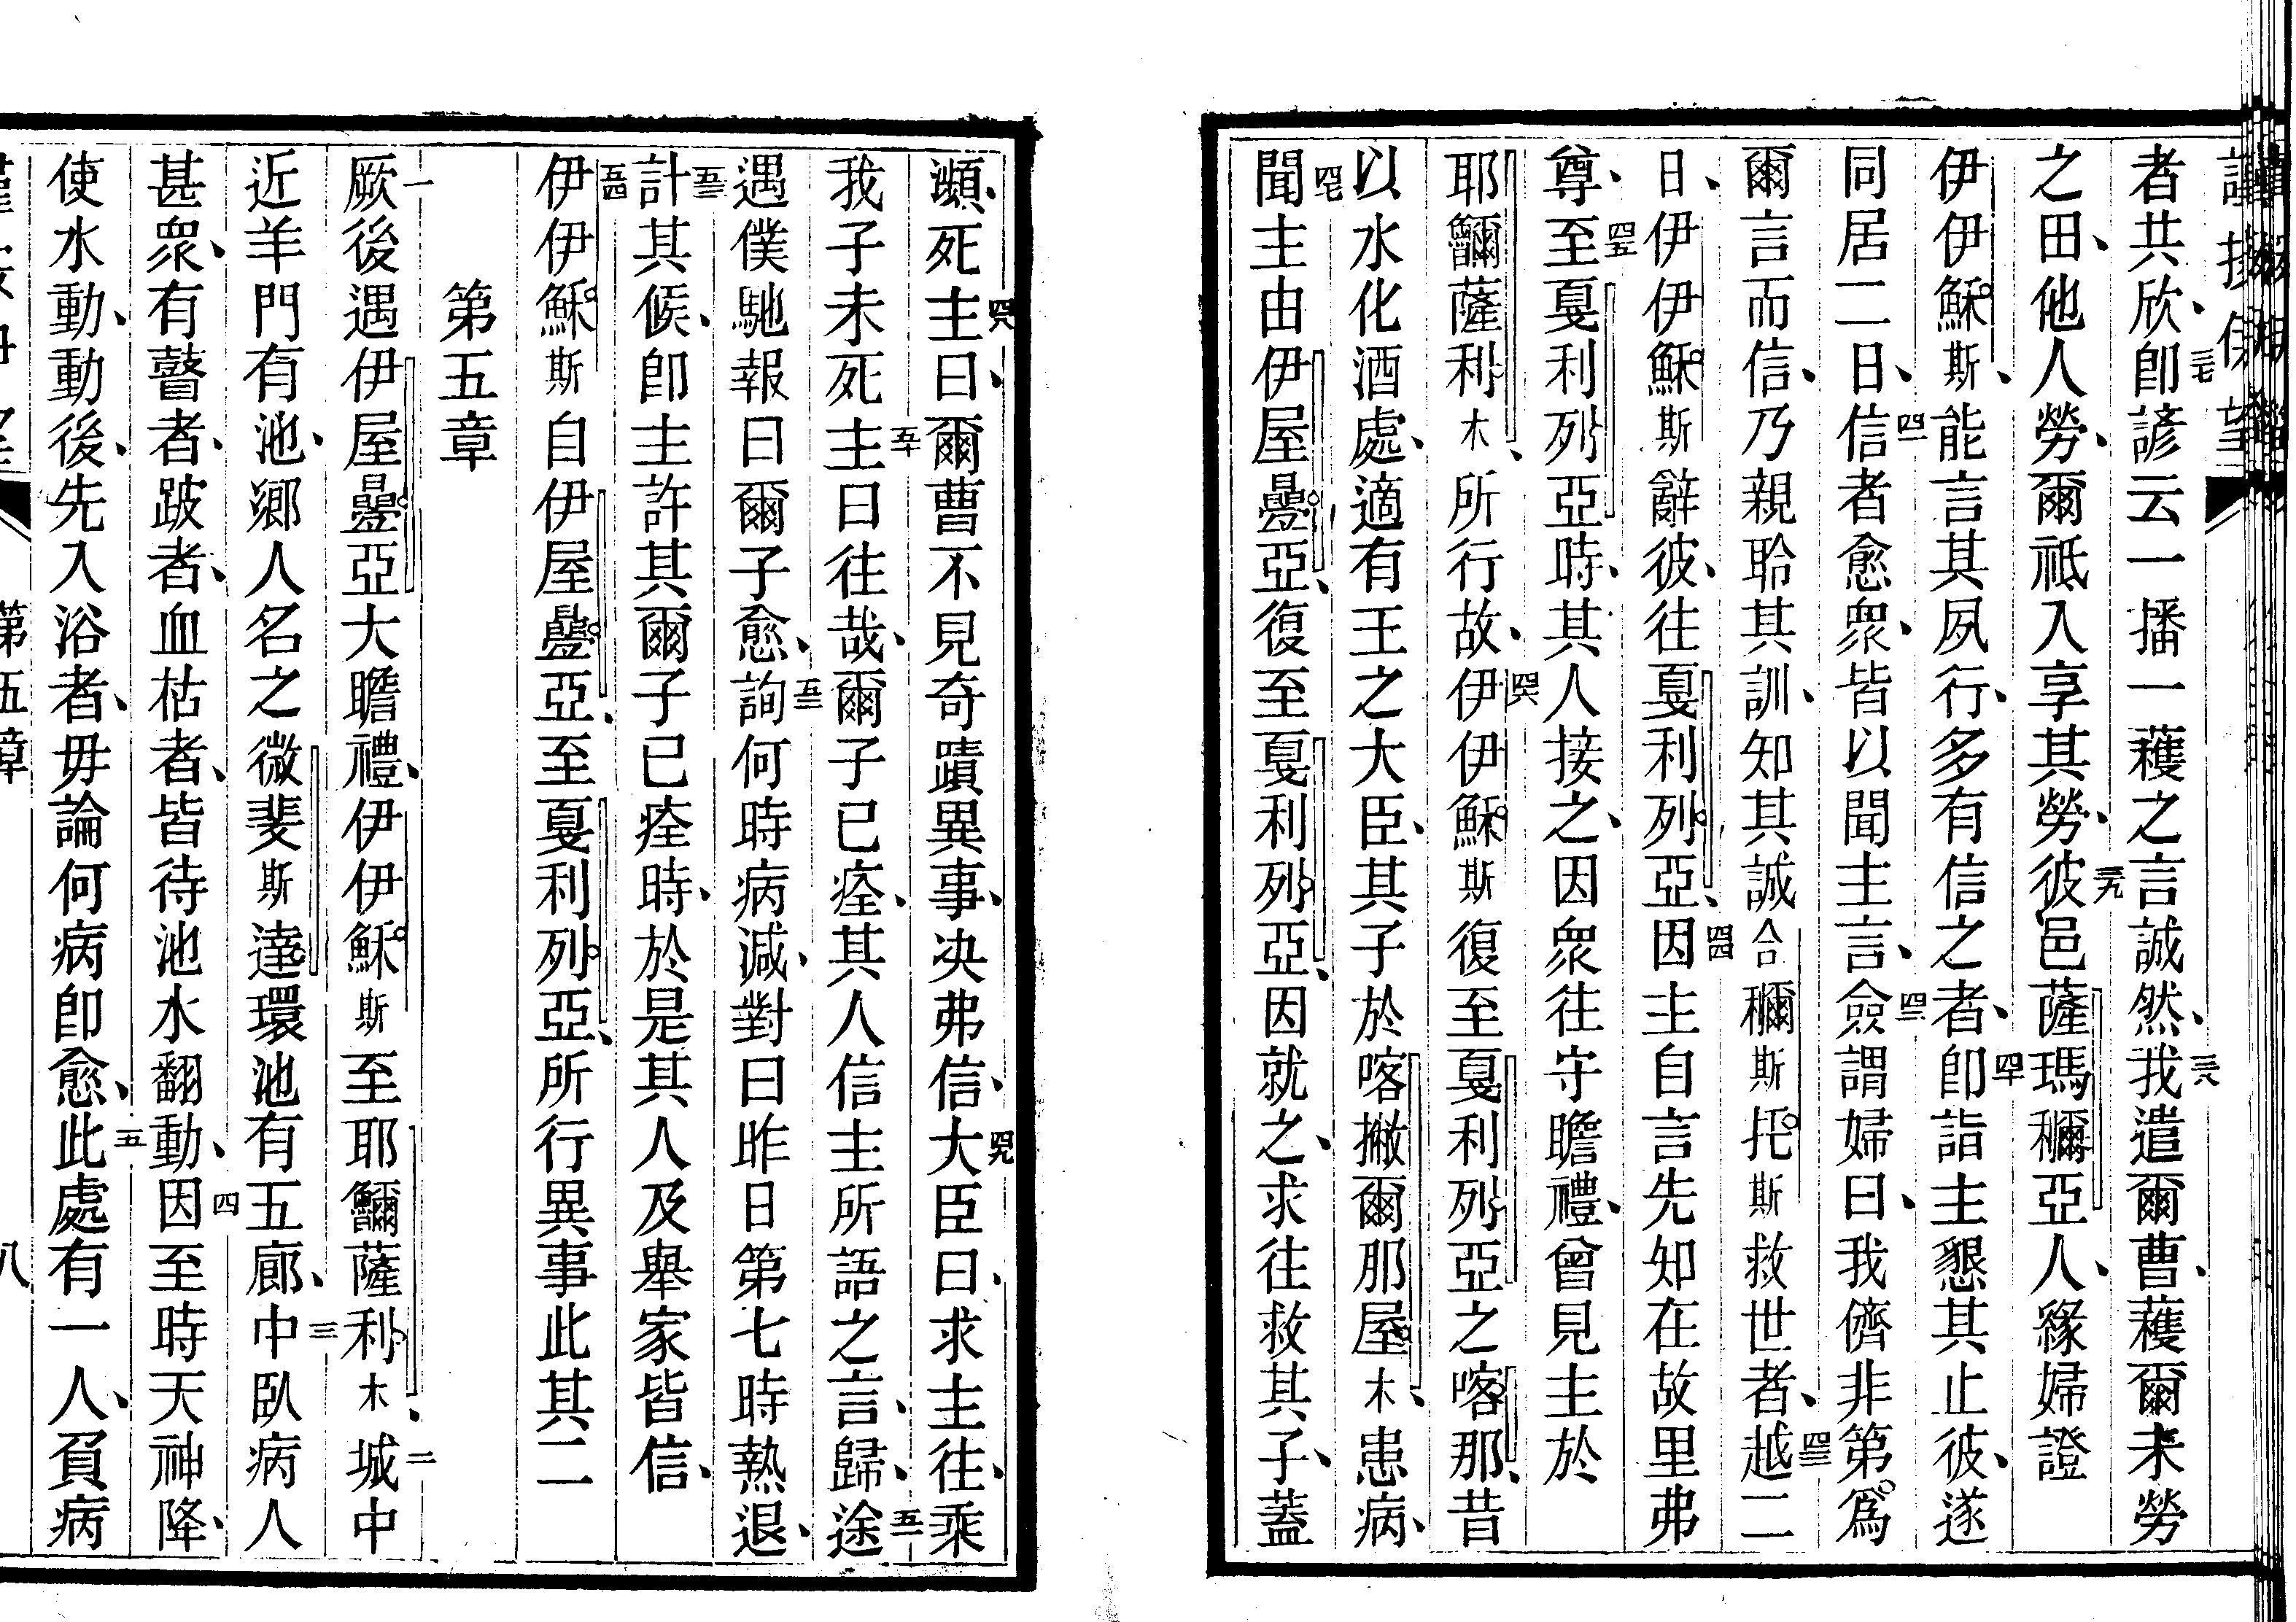 者共欣、三七卽諺云一播一穫之言誠然、三八我遣爾曹、穫爾未勞
之田、他人勞、爾祗入享其勞、三九彼邑薩瑪穪亞人、緣婦證
伊伊穌斯、能言其夙行、多有信之者、四十卽詣主懇其止彼、遂
同居二日、四一信者愈衆、皆以聞主言、四二僉謂婦曰、我儕非第爲
爾言而信、乃親聆其訓、知其誠合穪斯托斯救世者、四三越二
日、伊伊穌斯辭彼、往戛利列亞、四四因主自言先知在故里弗
尊、四五至戛利列亞時、其人接之、因衆往守瞻禮、曾見主於
耶䥯薩利木、所行故、四六伊伊穌斯復至戛利列亞之喀那、昔
以水化酒處、適有王之大臣、其子於喀撇爾那屋木、患病、
四七聞主由伊屋曡亞、復至戛利列亞、因就之、求往救其子、蓋
瀕死、四八主曰、爾曹不見奇蹟異事、决弗信、四九大臣曰、求主往、乘
我子未死、五十主曰往哉、爾子已痊、其人信主所語之言、歸、五一途
遇僕馳報曰爾子愈、五二詢何時病減、對曰昨日第七時熱退、
五三計其候、卽主許其爾子已痊時、於是其人及舉家皆信、
五四伊伊穌斯自伊屋曡亞、至戛利列亞、所行異事此其二
第五章
一厥後遇伊屋曡亞大瞻禮、伊伊穌斯至耶䥯薩利木、二城中
近羊門有池、鄉人名之微斐斯達環池有五廊、三中臥病人
甚衆、有瞽者、跛者、血枯者、皆待池水翻動、四因至時天神降、
使水動、動後、先入浴者、毋論何病卽愈、五此處有一人、負病
第五章
八